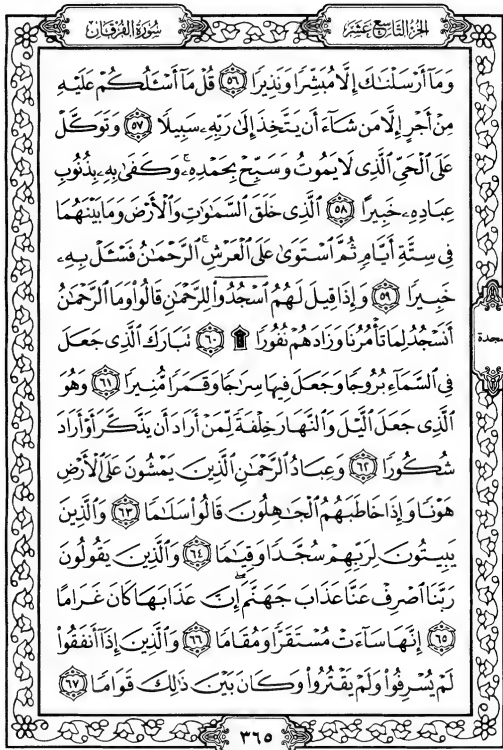 الجزء التاسع عشر
سورة الفرقان
وَمَآ أَرْسَلْنَٰكَ إِلَّا مُبَشِّرًا وَنَذِيرًا ۝٥٦ قُلْ مَآ أَسْـَٔلُكُمْ عَلَيْهِ
مِنْ أَجْرٍ إِلَّا مَن شَآءَ أَن يَتَّخِذَ إِلَىٰ رَبِّهِۦ سَبِيلًا ۝٥٧ وَتَوَكَّلْ
عَلَى ٱلْحَىِّ ٱلَّذِى لَا يَمُوتُ وَسَبِّحْ بِحَمْدِهِۦ ۚ وَكَفَىٰ بِهِۦ بِذُنُوبِ
عِبَادِهِۦ خَبِيرًا ۝٥٨ ٱلَّذِى خَلَقَ ٱلسَّمَٰوَٰتِ وَٱلْأَرْضَ وَمَا بَيْنَهُمَا
فِى سِتَّةِ أَيَّامٍ ثُمَّ ٱسْتَوَىٰ عَلَى ٱلْعَرْشِ ۚ ٱلرَّحْمَٰنُ فَسْـَٔلْ بِهِۦ
خَبِيرًا ۝٥٩ وَإِذَا قِيلَ لَهُمُ ٱسْجُدُوا۟ لِلرَّحْمَٰنِ قَالُوا۟ وَمَا ٱلرَّحْمَٰنُ
أَنَسْجُدُ لِمَا تَأْمُرُنَا وَزَادَهُمْ نُفُورًا ۩ ۝٦٠ تَبَارَكَ ٱلَّذِى جَعَلَ
سجدة
فِى ٱلسَّمَآءِ بُرُوجًا وَجَعَلَ فِيهَا سِرَٰجًا وَقَمَرًا مُّنِيرًا ۝٦١ وَهُوَ
ٱلَّذِى جَعَلَ ٱلَّيْلَ وَٱلنَّهَارَ خِلْفَةً لِّمَنْ أَرَادَ أَن يَذَّكَّرَ أَوْ أَرَادَ
شُكُورًا ۝٦٢ وَعِبَادُ ٱلرَّحْمَٰنِ ٱلَّذِينَ يَمْشُونَ عَلَى ٱلْأَرْضِ
هَوْنًا وَإِذَا خَاطَبَهُمُ ٱلْجَٰهِلُونَ قَالُوا۟ سَلَٰمًا ۝٦٣ وَٱلَّذِينَ
يَبِيتُونَ لِرَبِّهِمْ سُجَّدًا وَقِيَٰمًا ۝٦٤ وَٱلَّذِينَ يَقُولُونَ
رَبَّنَا ٱصْرِفْ عَنَّا عَذَابَ جَهَنَّمَ ۖ إِنَّ عَذَابَهَا كَانَ غَرَامًا
۝٦٥ إِنَّهَا سَآءَتْ مُسْتَقَرًّا وَمُقَامًا ۝٦٦ وَٱلَّذِينَ إِذَآ أَنفَقُوا۟
لَمْ يُسْرِفُوا۟ وَلَمْ يَقْتُرُوا۟ وَكَانَ بَيْنَ ذَٰلِكَ قَوَامًا ۝٦٧
٣٦٥